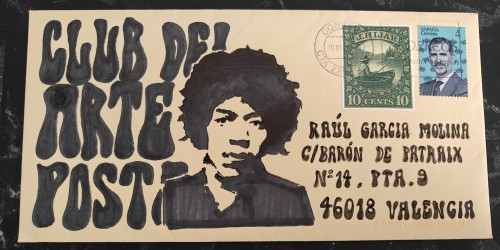 CLUB DEL
ARTE
POSTAL
J. HIJAR
10 CENTS 10
ESPAÑA
RAÚL GARCIA MOLINA
C/BARÓN DE PATRAIX
Nº14. PTA. 9
46018 VALENCIA